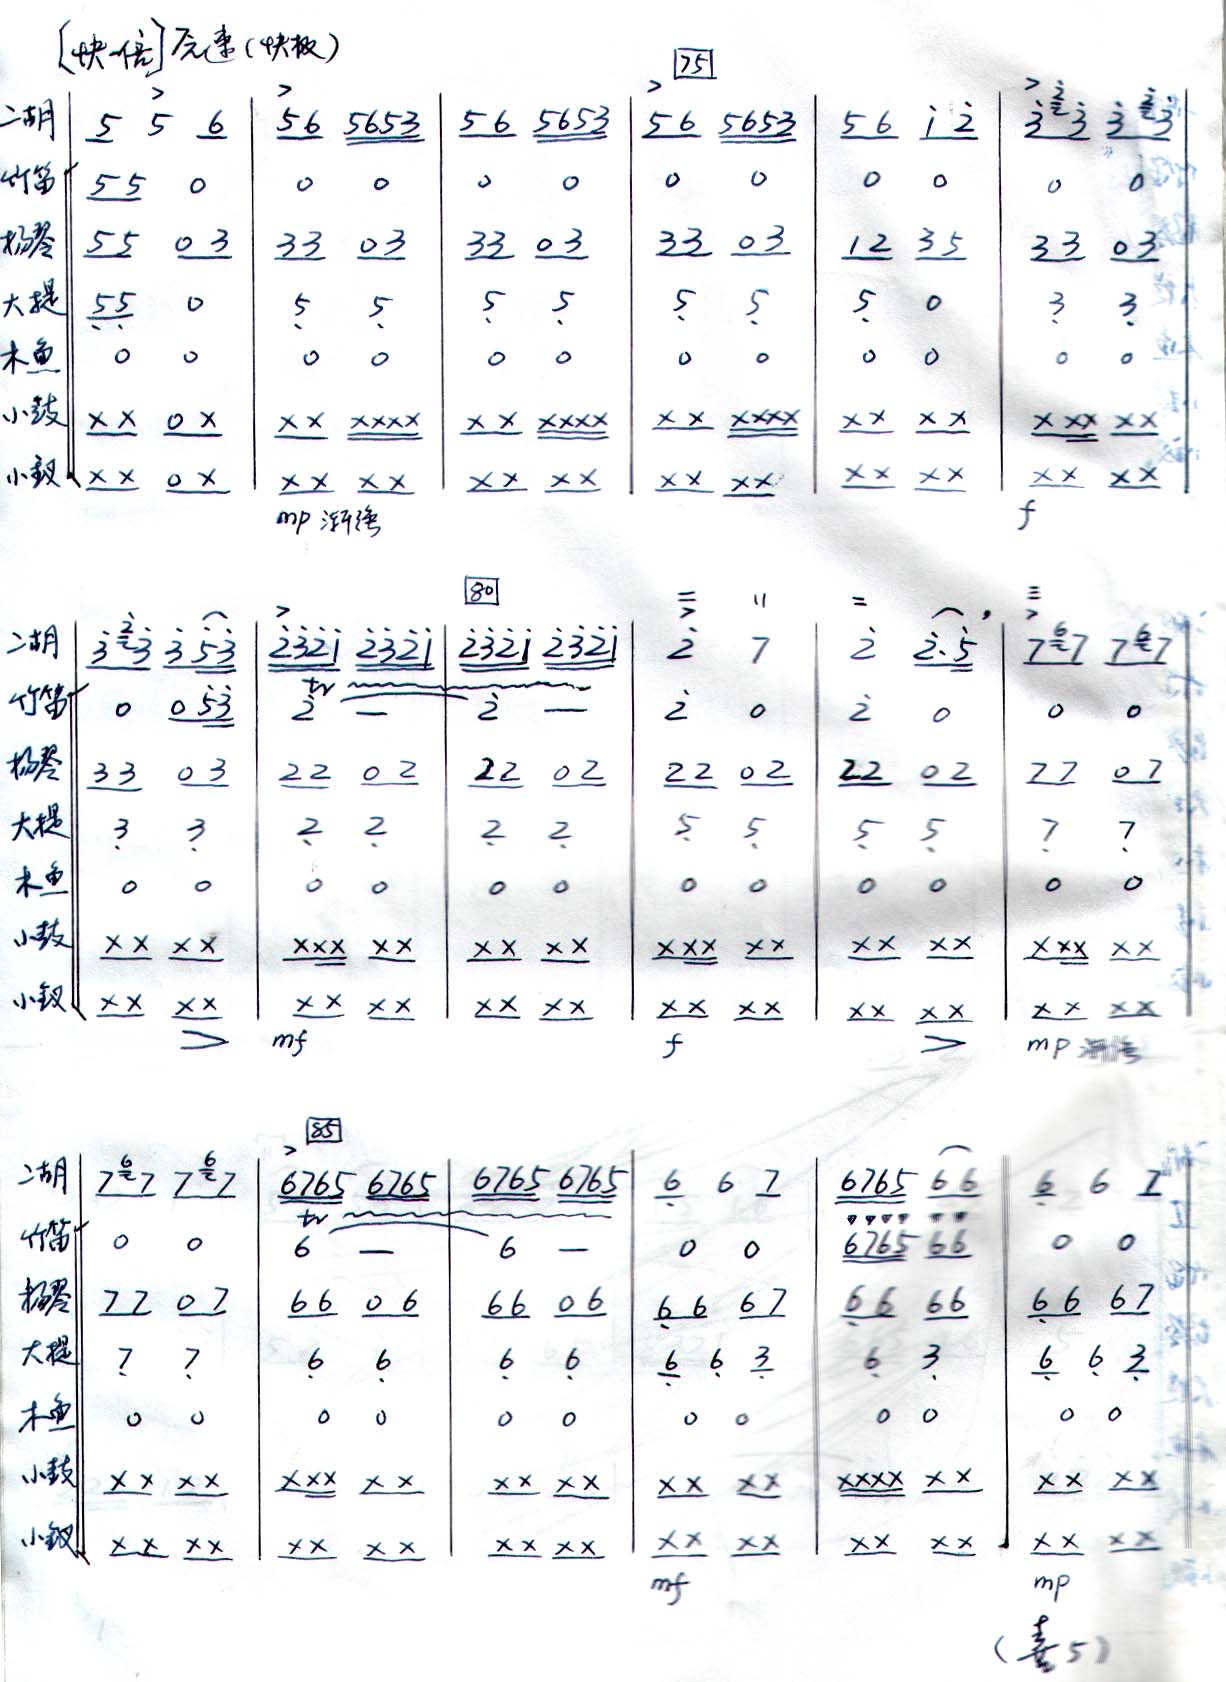 [快一倍]原速(快板)
75
二胡 5 5 6 | 56 5653 | 56 5653 | 56 5653 | 56 i 2̇ | 3̇ 2̇ 3̇ 3̇ 2̇ 3̇
竹笛 55 0 | 0 0 | 0 0 | 0 0 | 0 0 | 0 0
扬琴 55 03 | 33 03 | 33 03 | 33 03 | 12 35 | 33 03
大提 5̣5̣ 0 | 5̣ 5̣ | 5̣ 5̣ | 5̣ 5̣ | 5̣ 0 | 3̣ 3̣
木鱼 0 0 | 0 0 | 0 0 | 0 0 | 0 0 | 0 0
小鼓 XX 0X | XX XXXX | XX XXXX | XX XXXX | XX XX | XXX XX
小钗 XX 0X | XX XX | XX XX | XX XX | XX XX | XX XX
mp 渐强 f
80
二胡 3̇ 2̇ 3̇ 3̇ 5̇3̇ | 2̇3̇2̇i 2̇3̇2̇i | 2̇3̇2̇i 2̇3̇2̇i | 2̇ 7 | 2̇ 2̇·5̇ | 7 6 7 7 6 7
tr
竹笛 0 05̇3̇ | 2̇ — | 2̇ — | 2̇ 0 | 2̇ 0 | 0 0
扬琴 33 03 | 22 02 | 22 02 | 22 02 | 22 02 | 77 07
大提 3̣ 3̣ | 2̣ 2̣ | 2̣ 2̣ | 5̣ 5̣ | 5̣ 5̣ | 7̣ 7̣
木鱼 0 0 | 0 0 | 0 0 | 0 0 | 0 0 | 0 0
小鼓 XX XX | XXX XX | XX XX | XXX XX | XX XX | XXX XX
小钗 XX XX | XX XX | XX XX | XX XX | XX XX | XX XX
> mf f > mp 渐强
85
二胡 7 6 7 7 6 7 | 6765 6765 | 6765 6765 | 6 6 7 | 6765 66 | 6 6 7
tr
竹笛 0 0 | 6 — | 6 — | 0 0 | 6765 66 | 0 0
扬琴 77 07 | 66 06 | 66 06 | 6̣6 67 | 6̣6 66 | 6̣6 67
大提 7̣ 7̣ | 6̣ 6̣ | 6̣ 6̣ | 6̣ 6̣ 3̣ | 6̣ 3̣ | 6̣ 6̣ 3̣
木鱼 0 0 | 0 0 | 0 0 | 0 0 | 0 0 | 0 0
小鼓 XX XX | XXX XX | XX XX | XX XX | XXXX XX | XX XX
小钗 XX XX | XX XX | XX XX | XX XX | XX XX | XX XX
mf mp
(喜5)